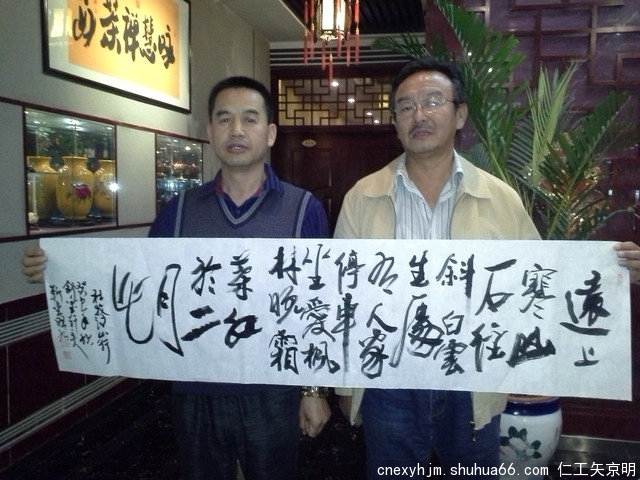 遠上
寒山
石徑
斜白雲
生處
有人家
停車
坐愛楓
林晚霜
葉紅
於二
月
花
杜牧山行
cnexyhjm.shuhua66.com 仁工矢京明